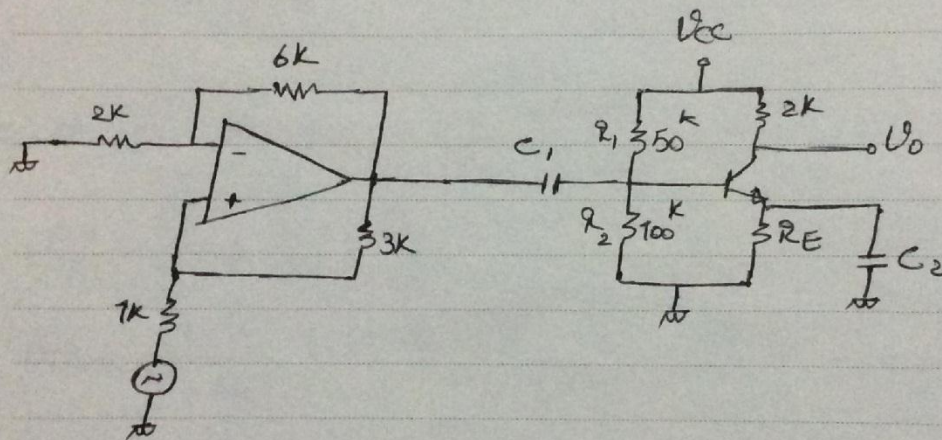 6K
2K
-
+
3K
1K
~
C₁
Vcc
R₁ 50K
2K
Vo
R₂ 100K
RE
C₂